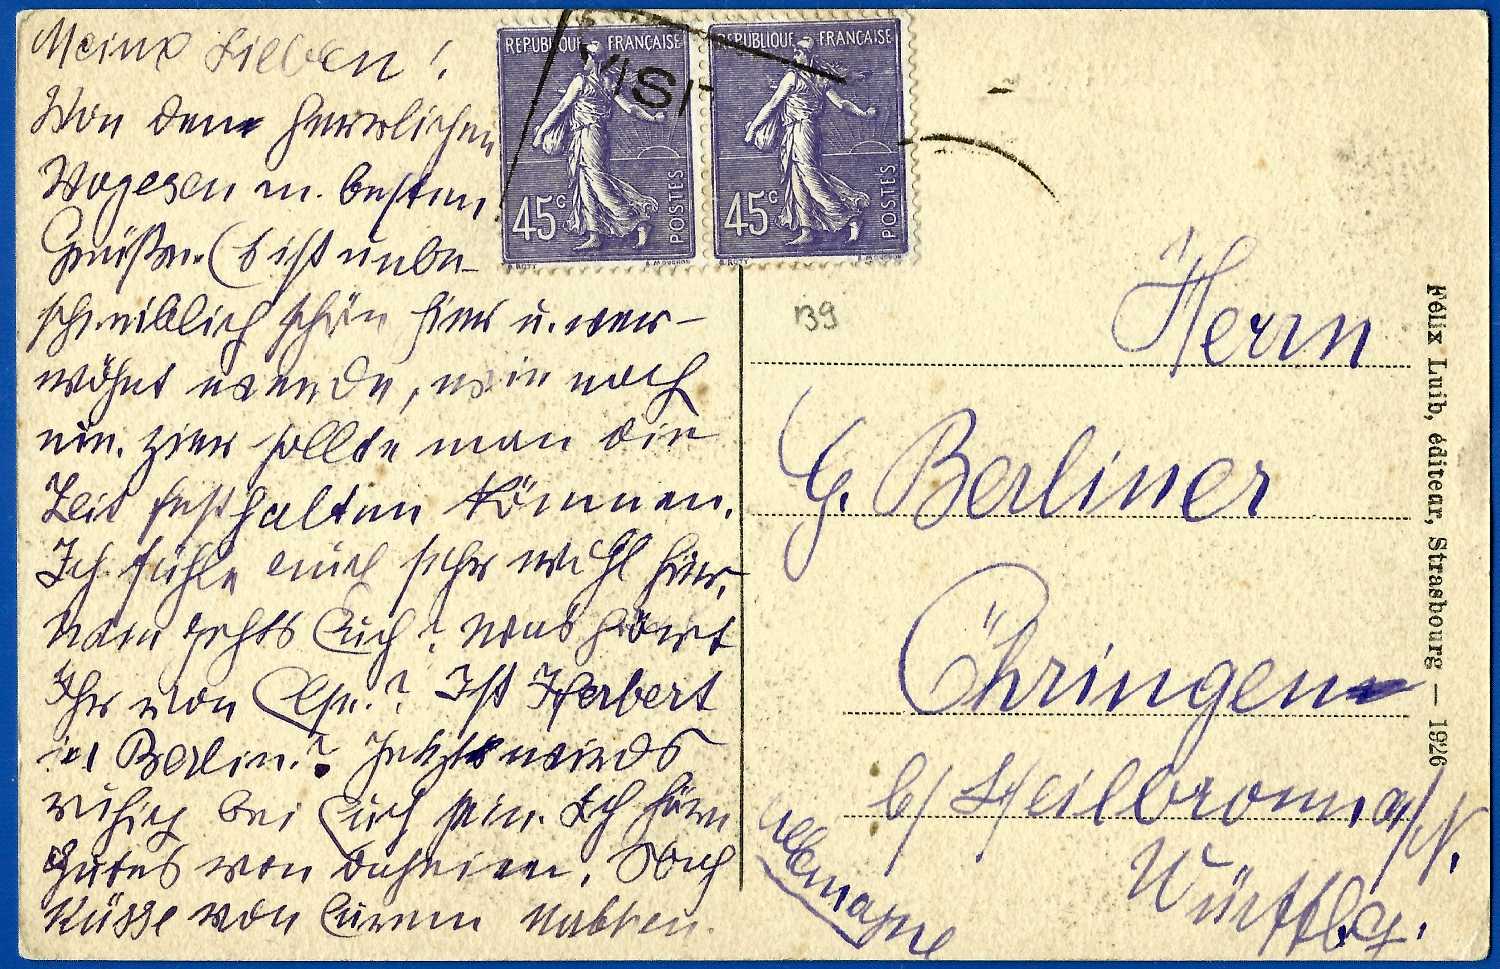 Meine Lieben!
Von den herrlichen
Vogesen m. besten
Grüßen. Es ist unbe-
schreiblich schön hier u. ver-
wöhnt werde, wie noch
nie. Hier sollte man die
Zeit festhalten können.
Ich fühle mich sehr wohl hier.
Wie gehts Euch? Was hört
Ihr von Else? Ist Herbert
in Berlin? Jetzt wirds
ruhig bei Euch sein. Ich höre
Gutes von daheim. Noch
Küsse von Eurem
REPUBLIQUE FRANÇAISE
45c
POSTES
O. ROTY
REPUBLIQUE FRANÇAISE
45c
POSTES
O. ROTY
139
Herrn
G. Berliner
Öhringen
b/ Heilbronn a/N.
Württbg.
Allemagne
Félix Luib, éditeur, Strasbourg — 1926